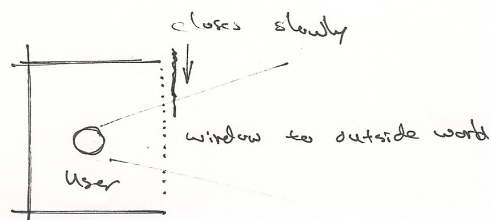 closes slowly
window to outside world
User